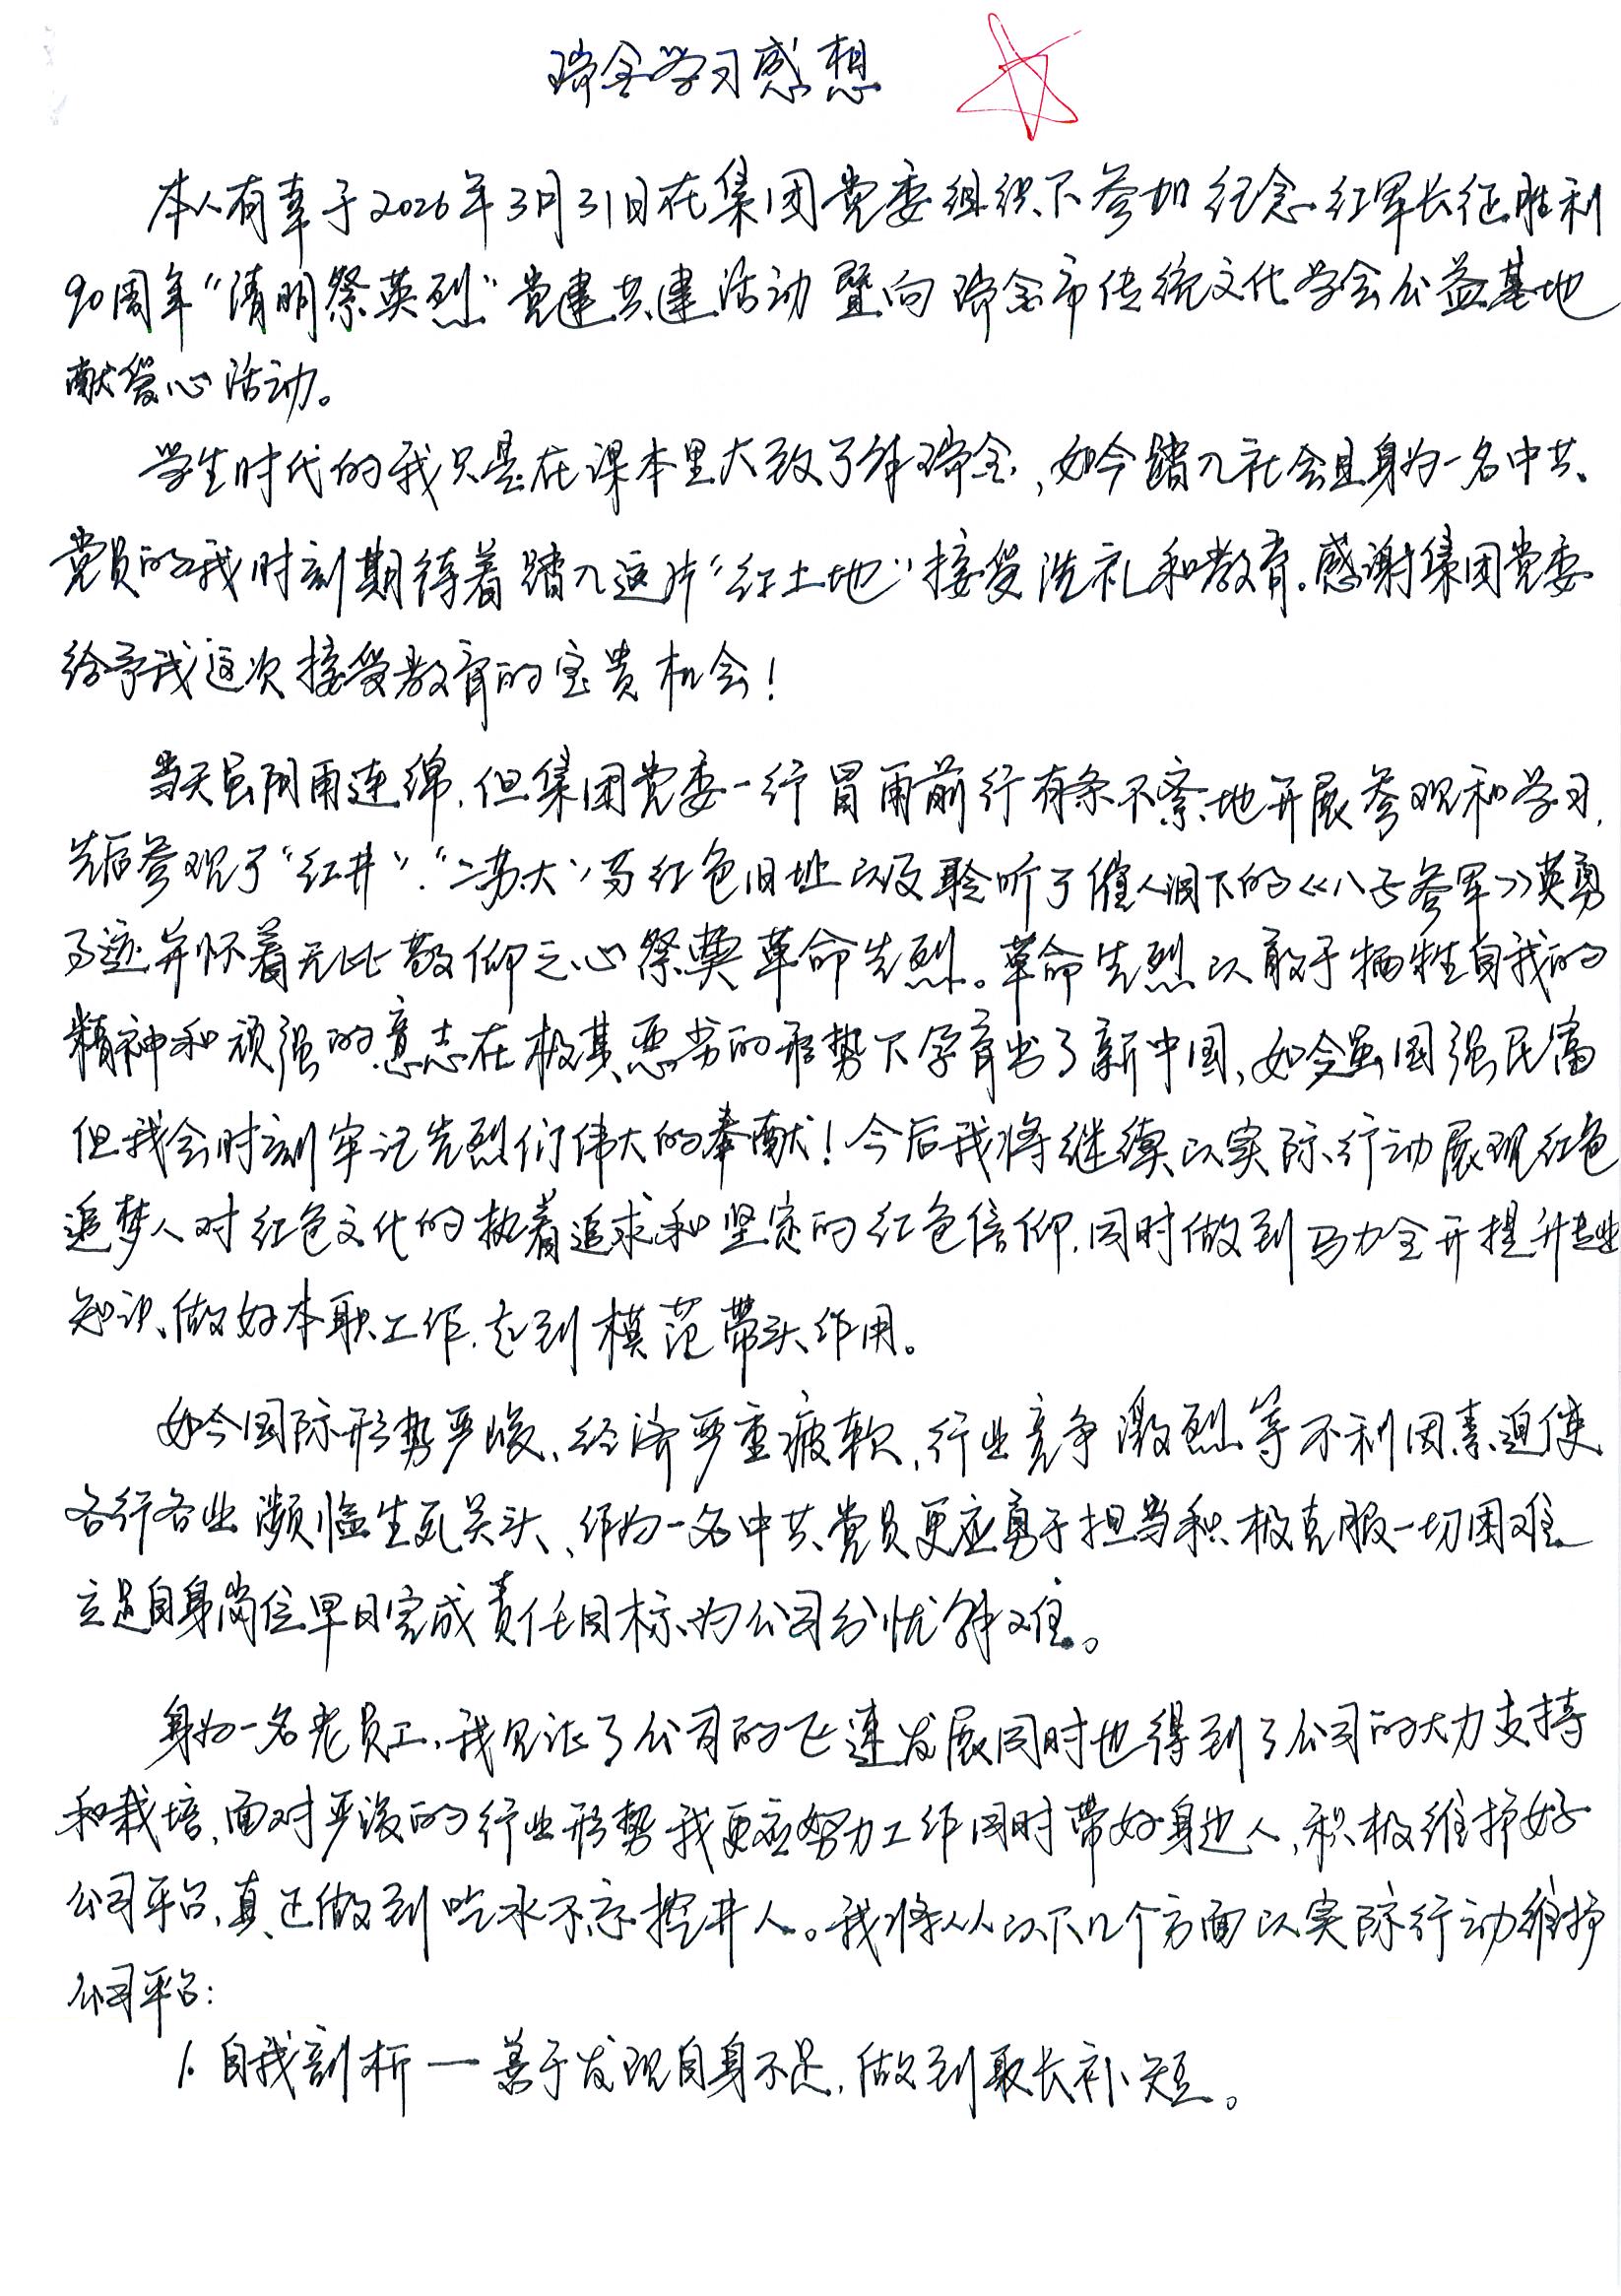 瑞金学习感想
本人有幸于2026年3月31日在集团党委组织下参加纪念红军长征胜利
90周年“清明祭英烈”党建共建活动暨向瑞金市传统文化学会公益基地
献爱心活动。
学生时代的我只是在课本里大致了解瑞金,如今踏入社会且身为一名中共
党员的我时刻期待着踏入这片“红土地”接受洗礼和教育.感谢集团党委
给予我这次接受教育的宝贵机会!
当天虽阴雨连绵,但集团党委一行冒雨前行有条不紊地开展参观和学习,
先后参观了“红井”.“二苏大”等红色旧址以及聆听了催人泪下的《八子参军》英勇
事迹并怀着无比敬仰之心祭奠革命先烈。革命先烈以敢于牺牲自我的
精神和顽强的意志在极其恶劣的形势下孕育出了新中国,如今虽国强民富
但我会时刻牢记先烈们伟大的奉献!今后我将继续以实际行动展现红色
追梦人对红色文化的执着追求和坚定的红色信仰,同时做到马力全开提升专业
知识、做好本职工作,起到模范带头作用。
如今国际形势严峻、经济严重疲软,行业竞争激烈等不利因素迫使
各行各业濒临生死关头、作为一名中共党员更应勇于担当积极克服一切困难
立足自身岗位早日完成责任目标、为公司分忧解难。
身为一名老员工,我见证了公司的飞速发展同时也得到了公司的大力支持
和栽培,面对严峻的行业形势我更应努力工作同时带好身边人,积极维护好
公司平台,真正做到吃水不忘挖井人。我将从以下几个方面以实际行动维护
公司平台:
1.自我剖析—善于发现自身不足,做到取长补短。